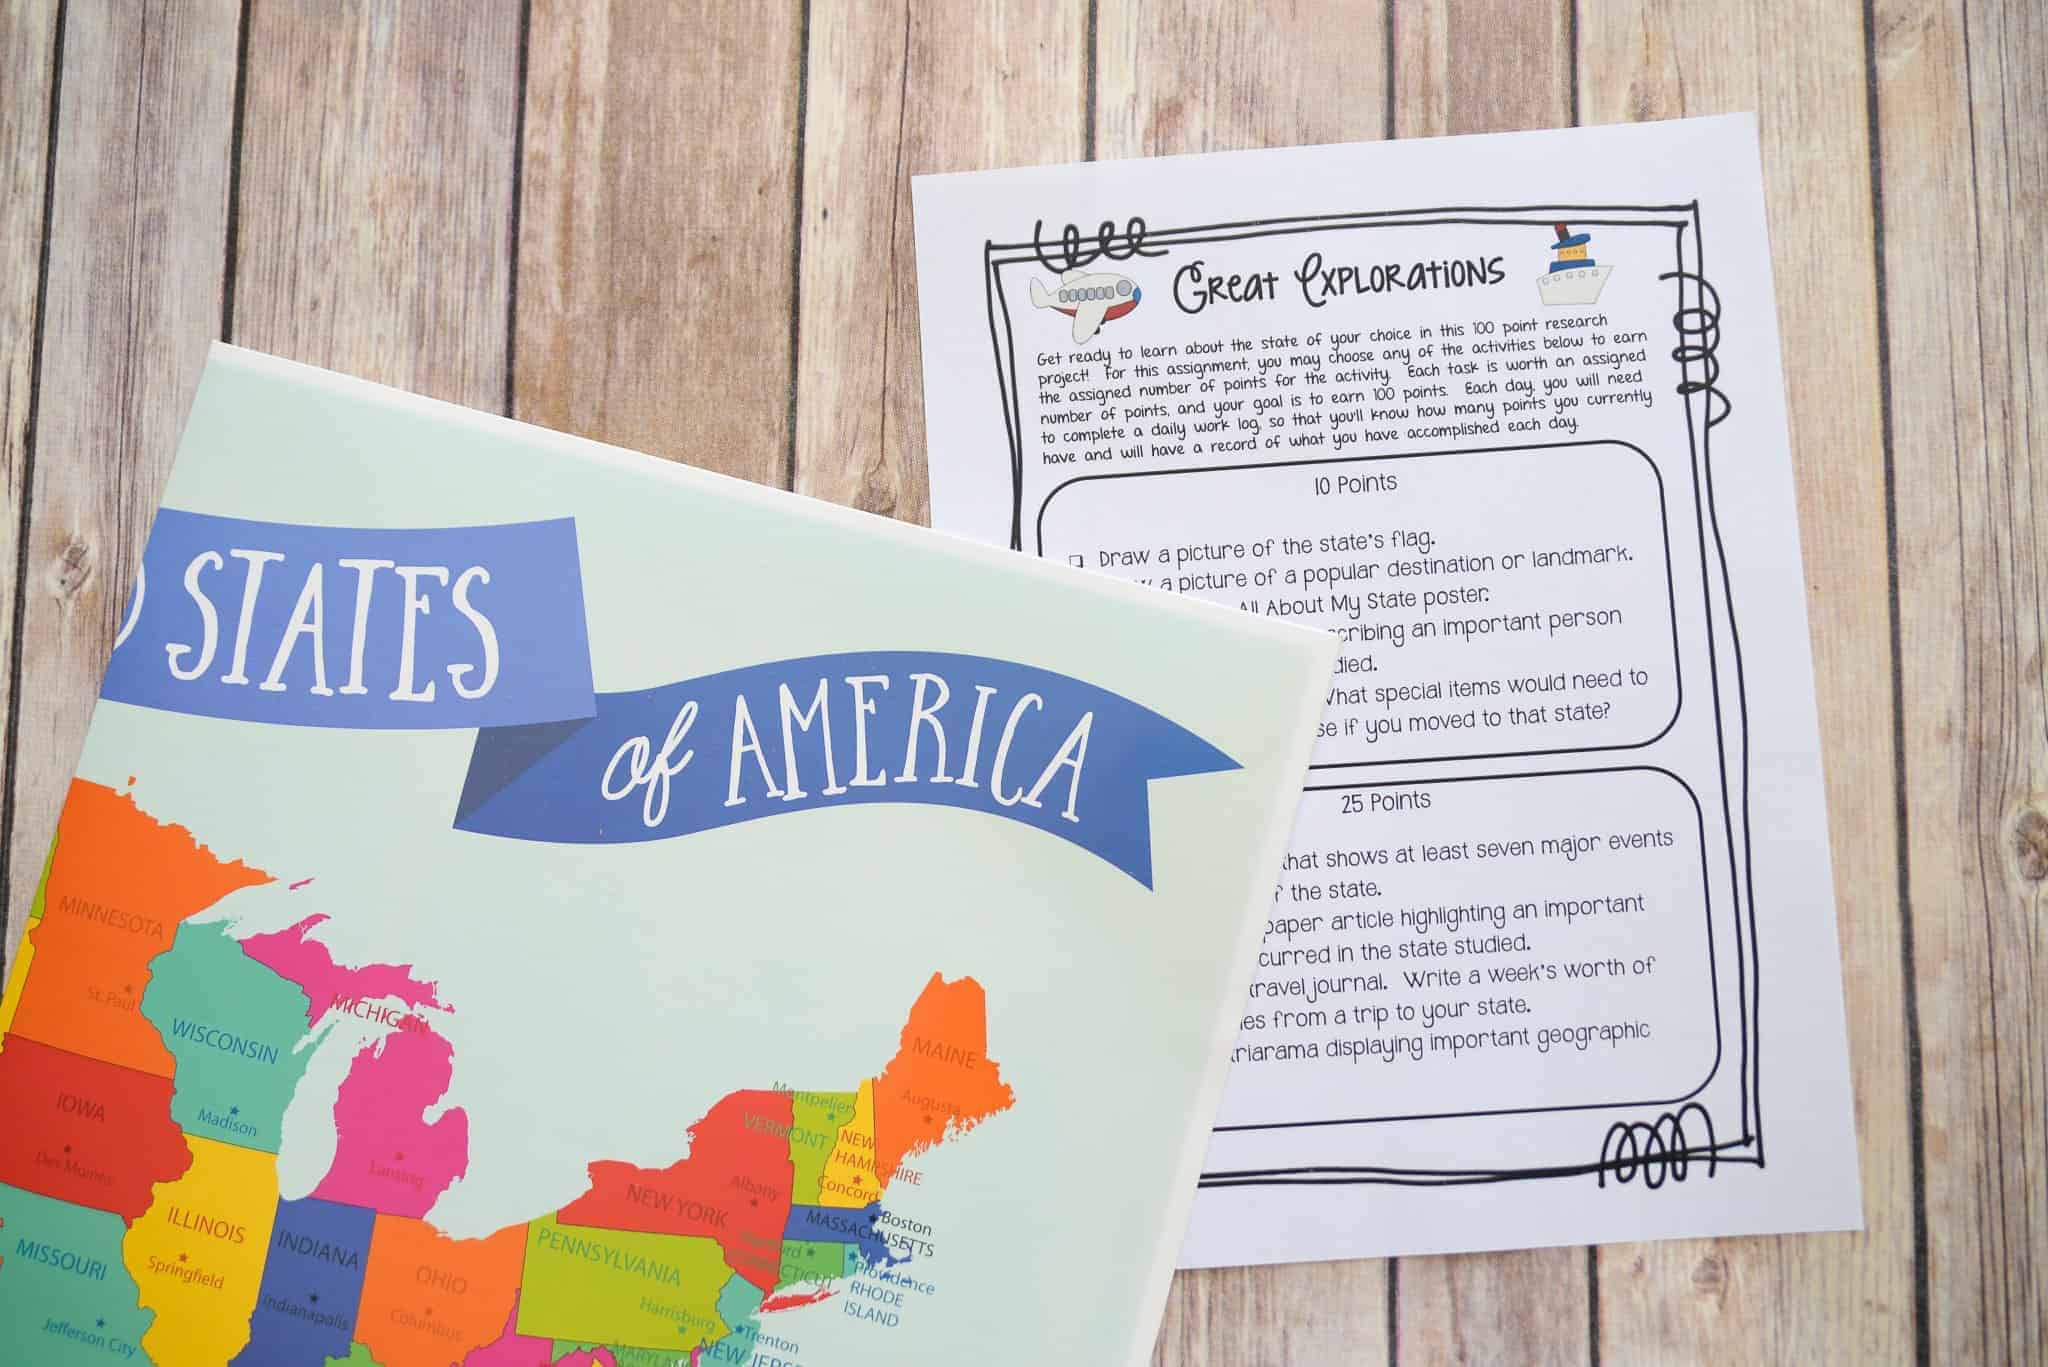 Great Explorations
Get ready to learn about the state of your choice in this 100 point research
project! For this assignment, you may choose any of the activities below to earn
the assigned number of points for the activity. Each task is worth an assigned
number of points, and your goal is to earn 100 points. Each day, you will need
to complete a daily work log, so that you'll know how many points you currently
have and will have a record of what you have accomplished each day.
10 Points
Draw a picture of the state's flag.
a picture of a popular destination or landmark.
All About My State poster.
an important person
What special items would need to
if you moved to that state?
25 Points
that shows at least seven major events
the state.
paper article highlighting an important
in the state studied.
travel journal. Write a week's worth of
from a trip to your state.
displaying important geographic
STATES
of AMERICA
MINNESOTA
St. Paul
WISCONSIN
Madison
MICHIGAN
Lansing
IOWA
Des Moines
ILLINOIS
Springfield
INDIANA
Indianapolis
MISSOURI
Jefferson City
OHIO
Columbus
PENNSYLVANIA
Harrisburg
NEW YORK
Albany
Montpelier
VERMONT
NEW
HAMPSHIRE
Concord
MAINE
Augusta
Boston
MASSACHUSETTS
Hartford
CONNECTICUT
Providence
RHODE
ISLAND
Trenton
NEW